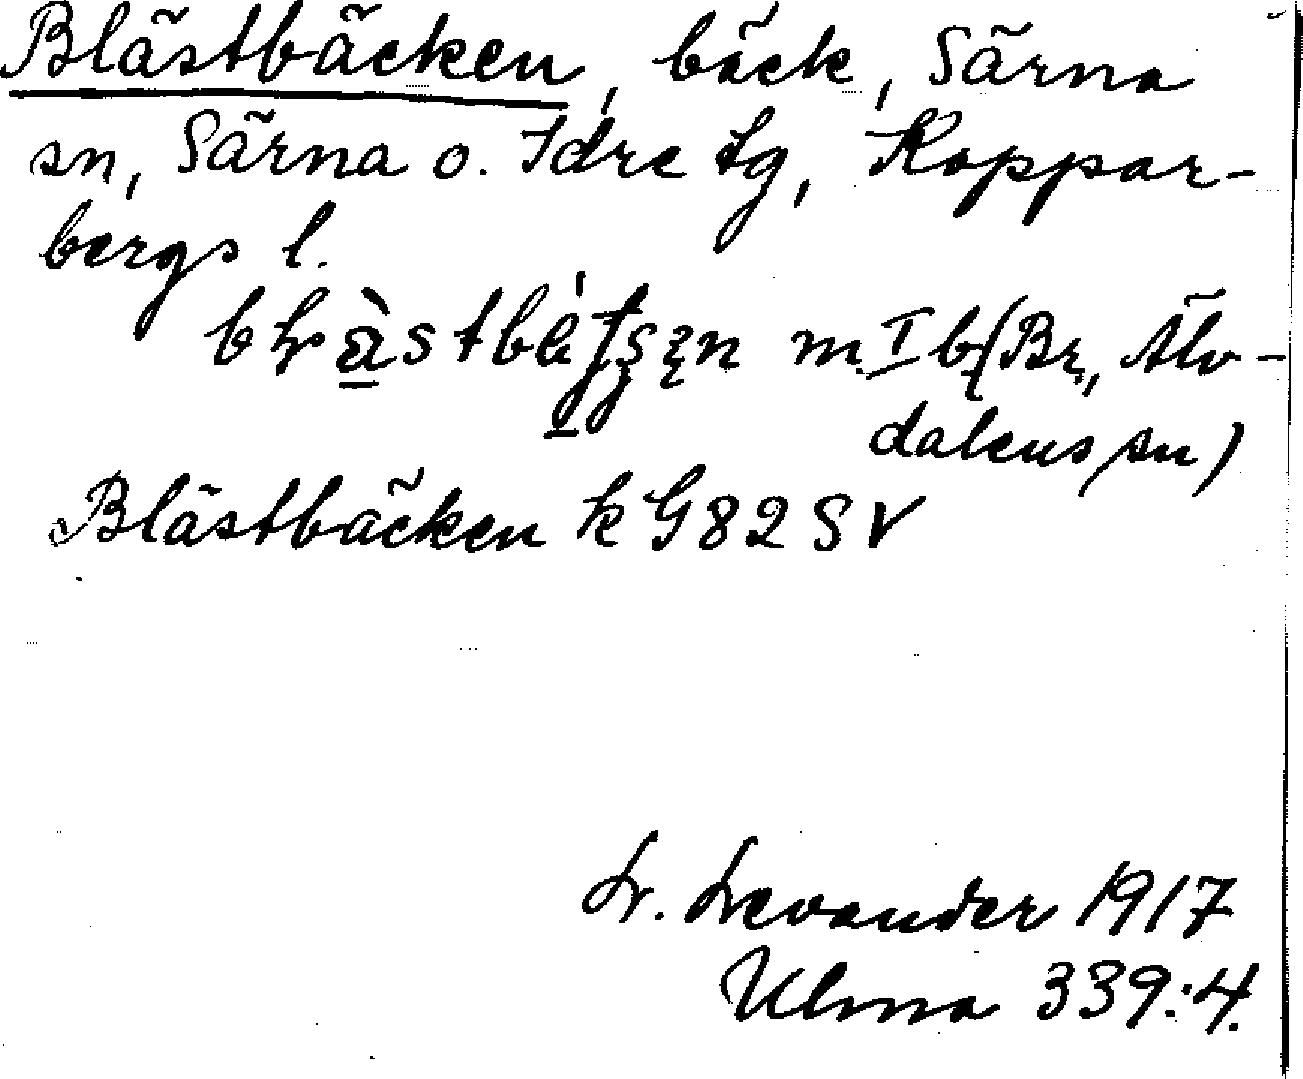 Blästbäcken, bäck, Särna
sn, Särna o. Idre tg, Koppar-
bergs l.
m. I b (Br, Älv-
dalens sn)
Blästbäcken k G 82 SV
L. Levander 1917
Ulma 339:4.